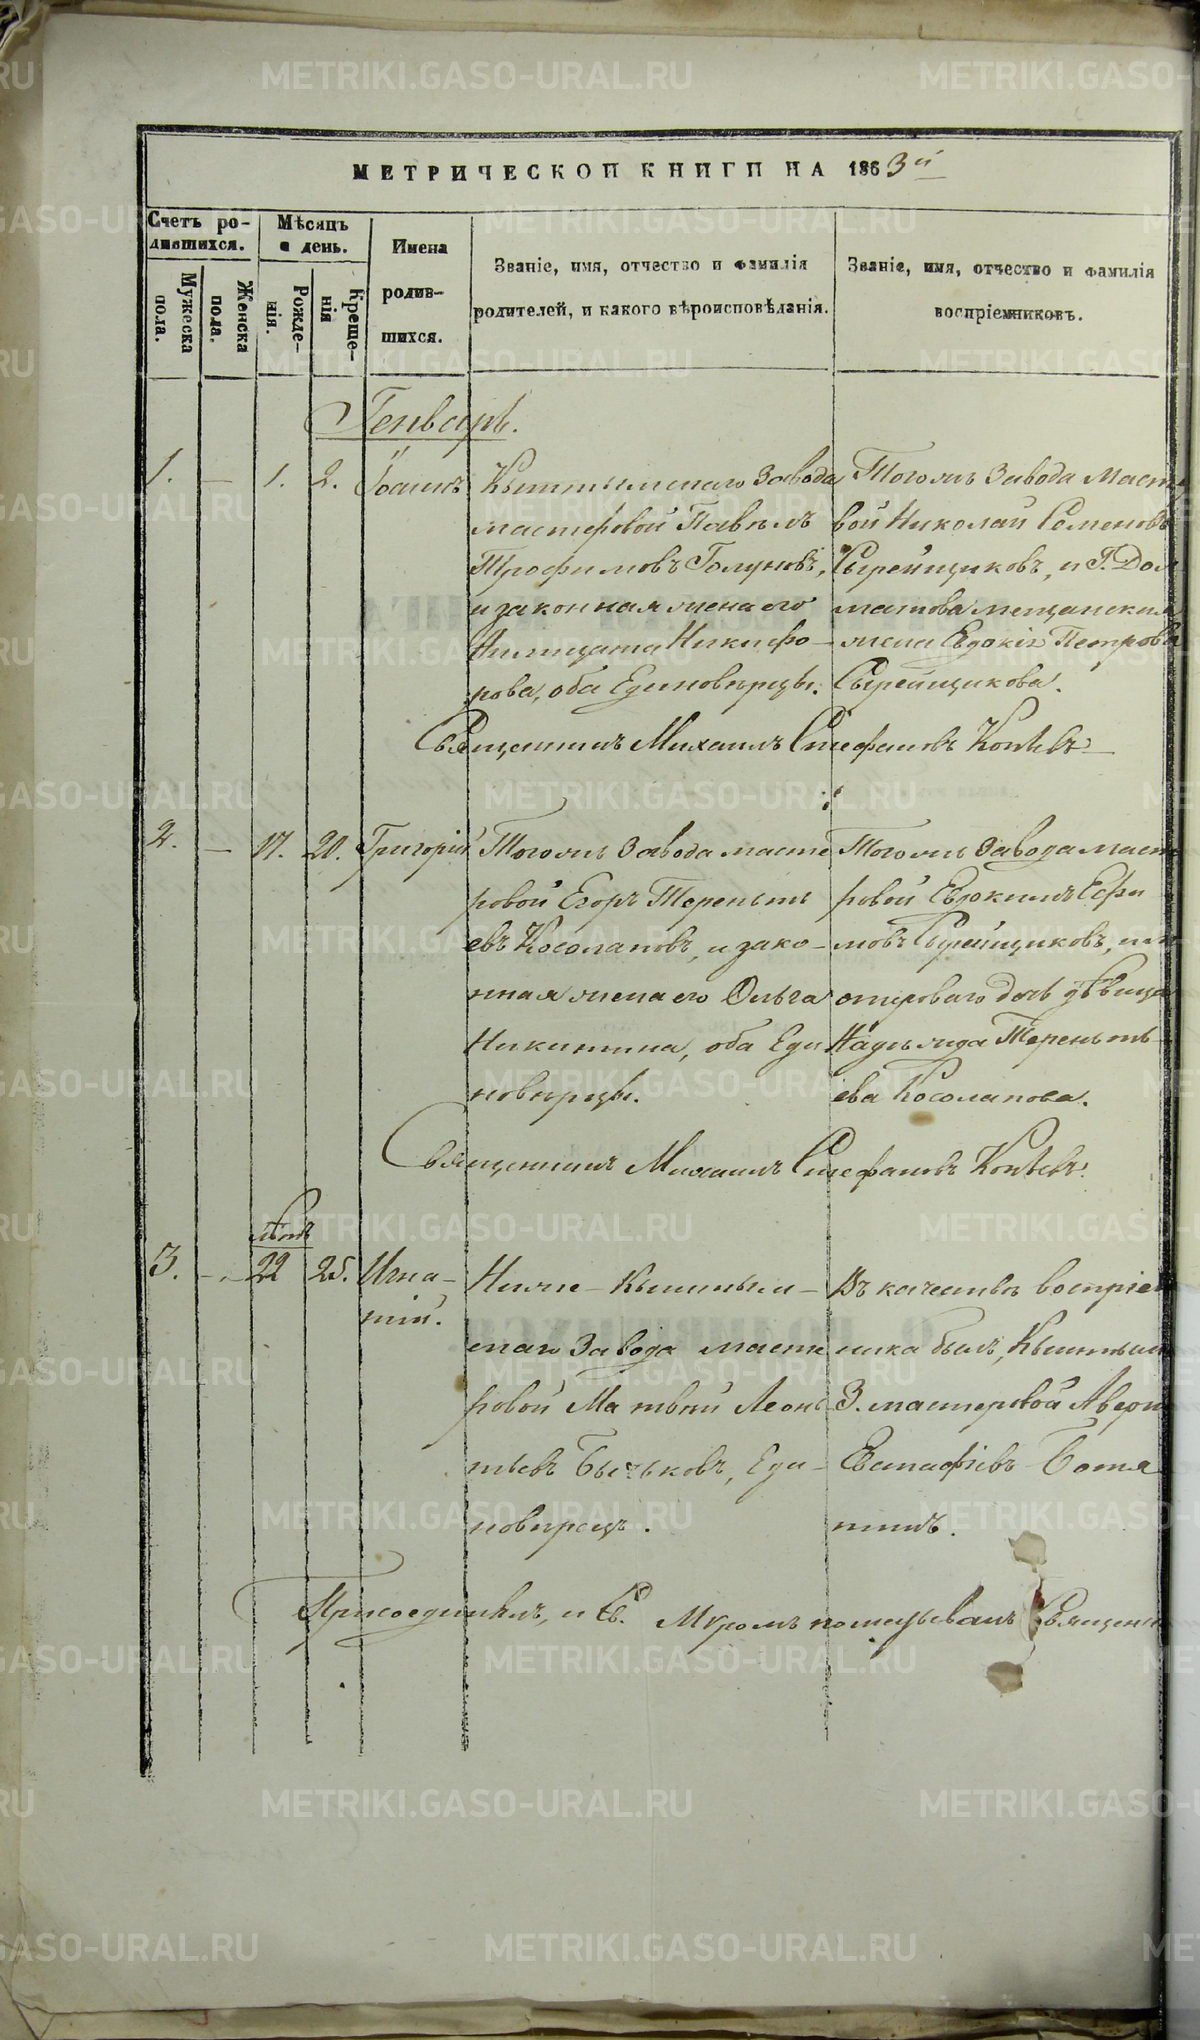 МЕТРИЧЕСКОЙ КНИГИ НА 1863й
Счетъ ро-
дившихся.
Мѣсяцъ
и день.
Имена
родив-
шихся.
Званіе, имя, отчество и фамилія
родителей, и какого вѣроисповѣданія.
Званіе, имя, отчество и фамилія
воспріемниковъ.
Мужеска
пола.
Женска
пола.
Рожде-
нія.
Креще-
нія
Генварь.
1. — 1. 2. Іоаннъ
Кыштымскаго Завода
мастеровой Павелъ
Трофимовъ Голуновъ,
и законная жена его
Никифо-
рова, оба Единовѣрцы.
Тогожъ Завода Мастеро
вой Николай Семеновъ
Сырейщиковъ, и Г. Дол
матова мещанская
жена Евдокія Петрова
Сырейщикова.
Священникъ Михаилъ Стефановъ Копѣевъ
2. — 17. 20. Григорій
Тогожъ Завода масте
ровой Егоръ Теренть
евъ Косолаповъ, и зако-
нная жена его Ольга
Никитина, оба Еди
новѣрцы.
Тогожъ Завода масте
ровой Евдокимъ Ефи
мовъ Сырейщиковъ, и м
стероваго дочь дѣвица
Надежда Теренть
ева Косолапова.
Священникъ Михаилъ Стефановъ Копѣевъ.
3. — 22 25. Игна-
тій.
Ниже-Кыштым-
скаго Завода масте
ровой Матвѣй Леонь
тьевъ Бычьковъ, Еди-
новѣрецъ.
Въ качествѣ воспріем
ника былъ, Кыштым
З. мастеровой Аверк
Евстафіевъ Ботя
нинъ.
Присоединилъ, и Св. Мѵромъ помазывалъ Священн